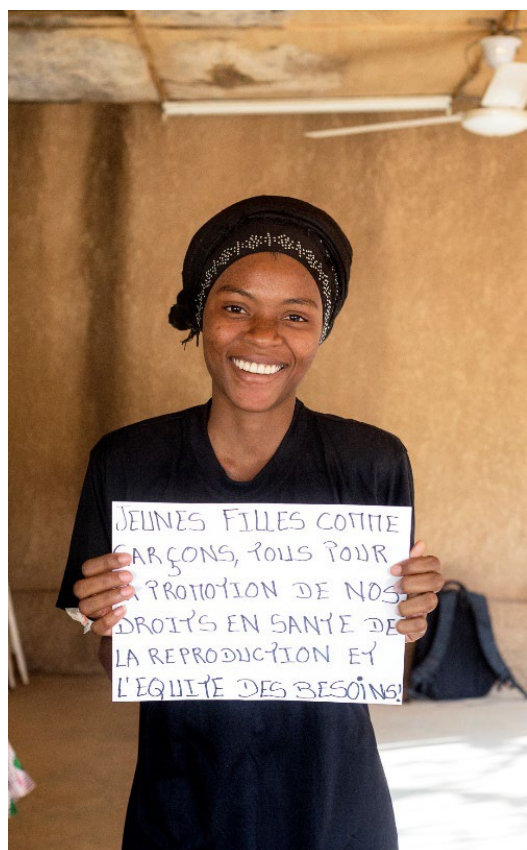 JEUNES FILLES COMME
GARÇONS, TOUS POUR
PROMOTION DE NOS
DROITS EN SANTE DE
LA REPRODUCTION ET
L'EQUITE DES BESOINS!